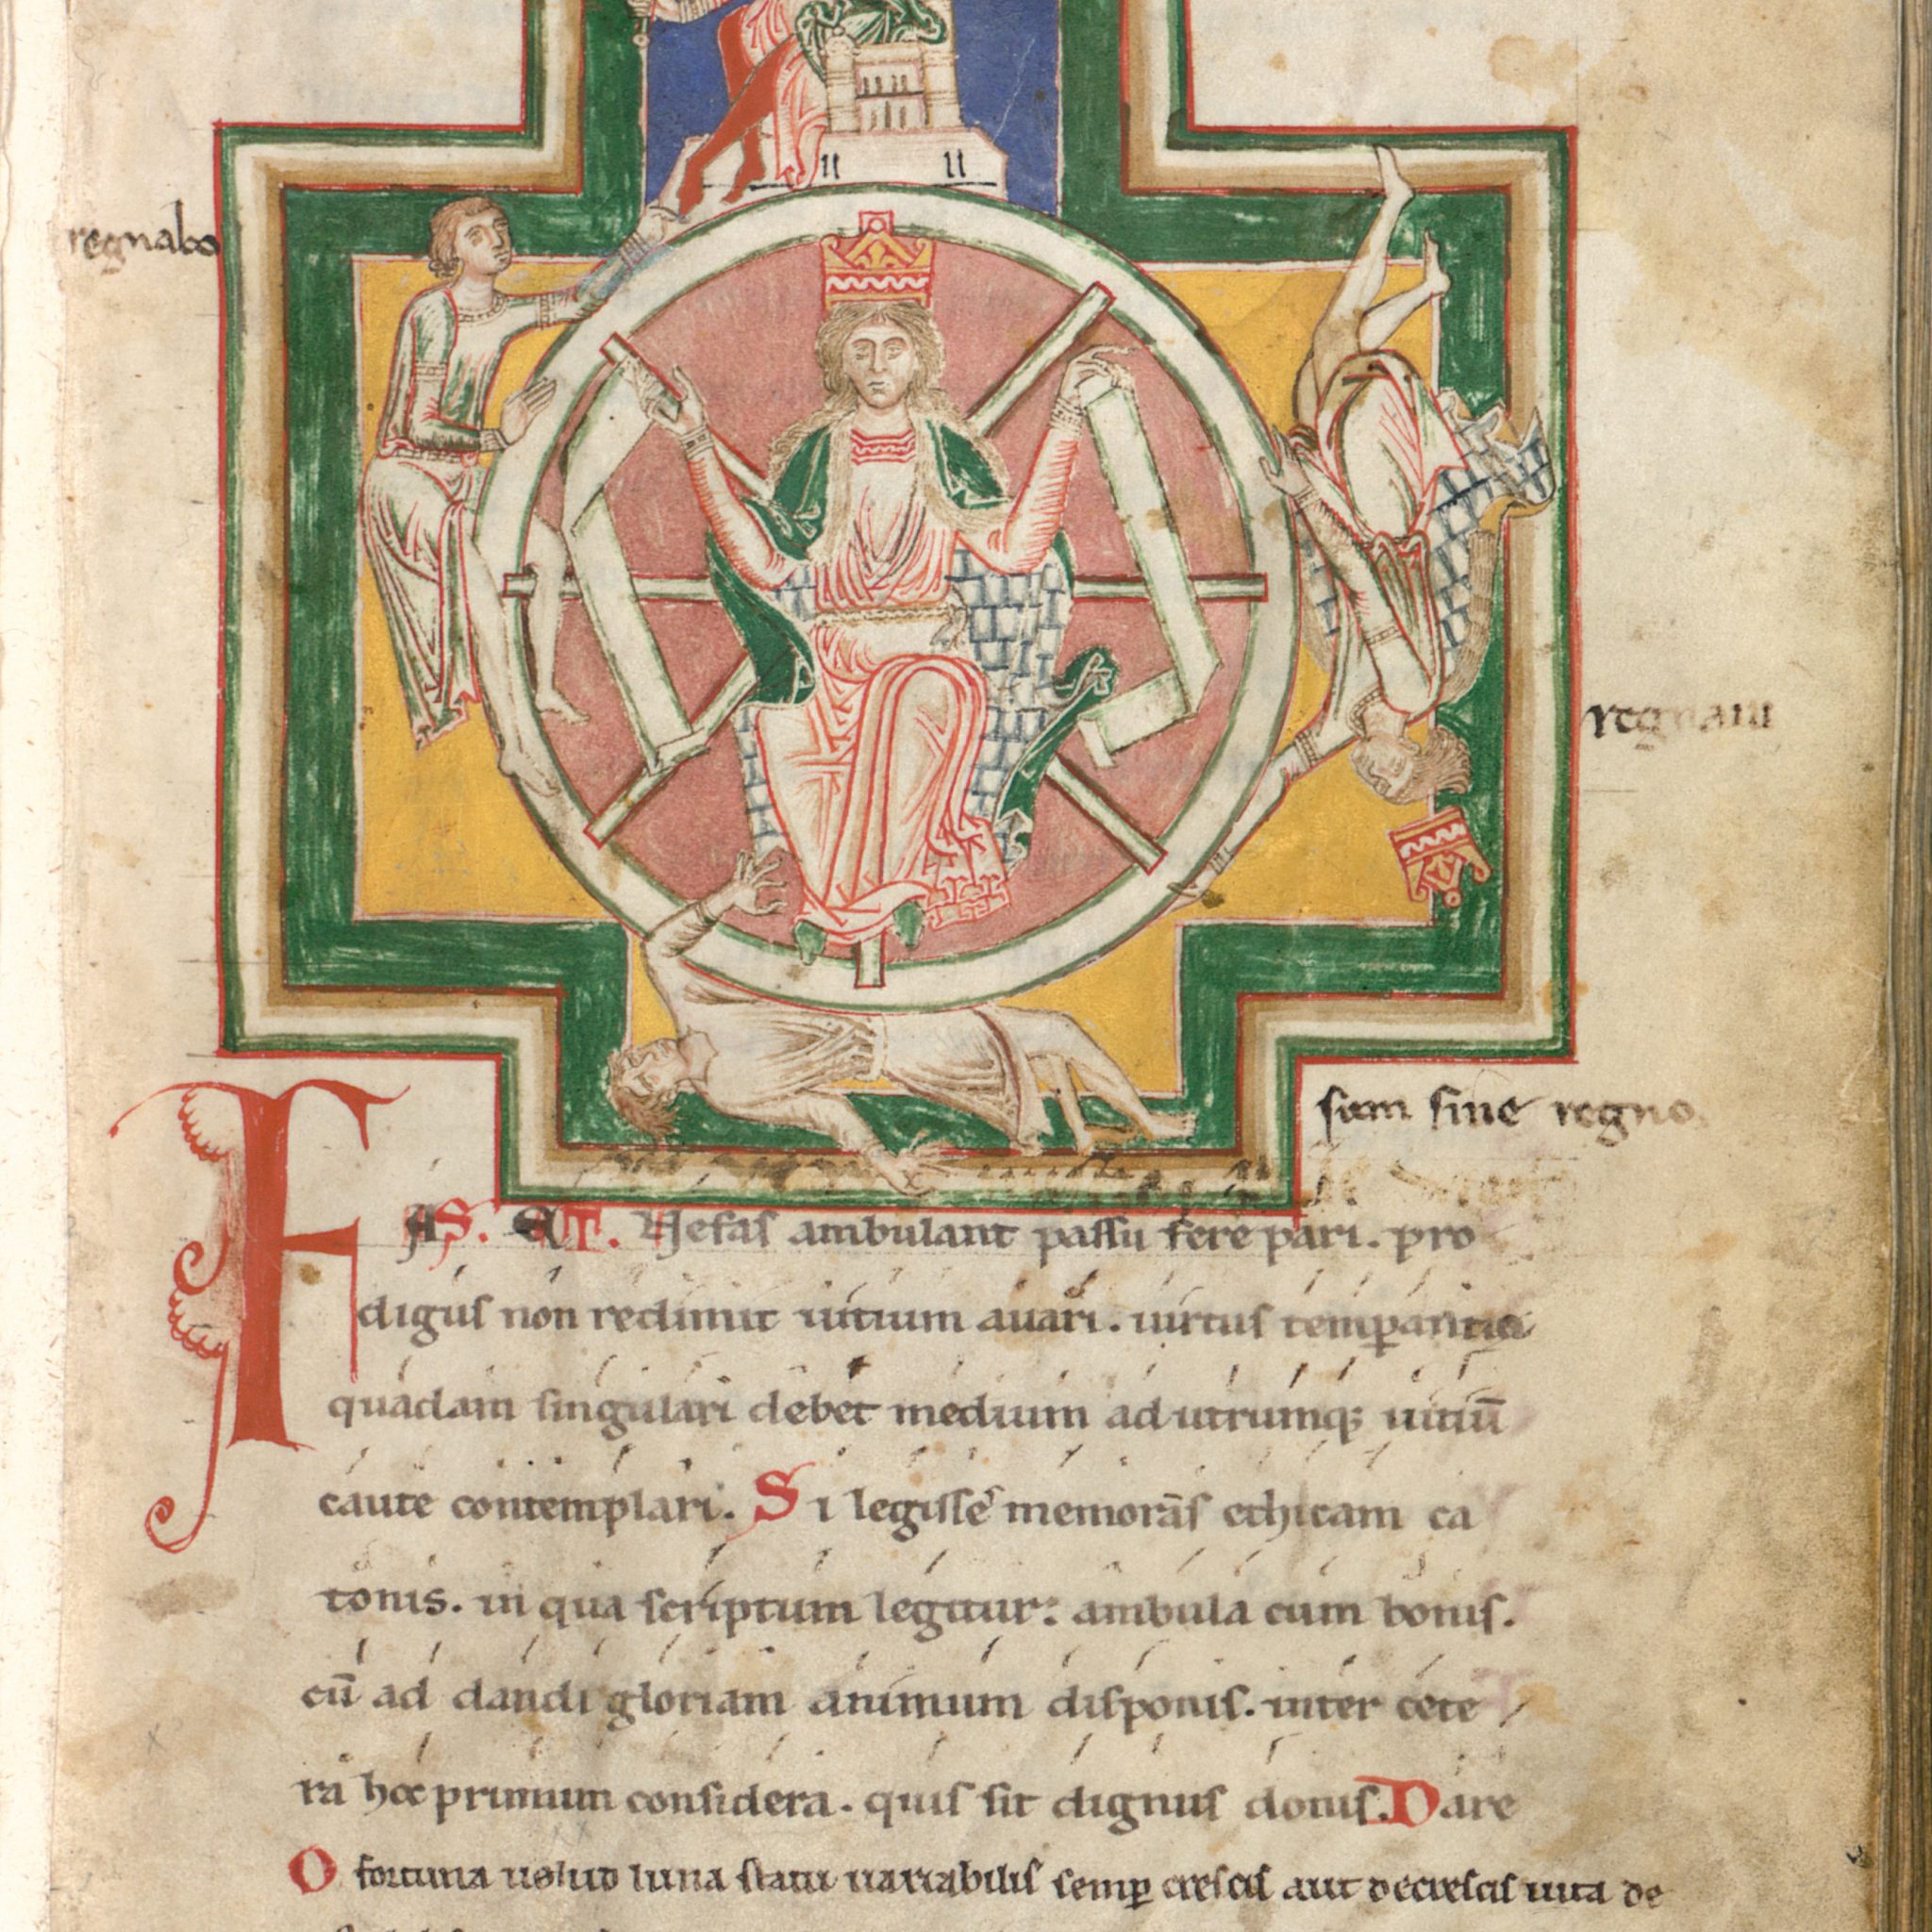 regnabo
regnaui
sum sine regno
FAS. ET. Nefas ambulant passu fere pari. pro
digus non redimit uitium auari. uirtus temperantia
quadam singulari debet medium ad utrumq; uitiū
caute contemplari. Si legisse memorās ethicam ca
tonis. in qua scriptum legitur: ambula cum bonis.
cū ad dandi gloriam animum disponis. inter cete
ra hoc primum considera. quis sit dignus donis. Dare
O fortuna uelud luna statu uariabilis semp crescis aut decrescis uita de